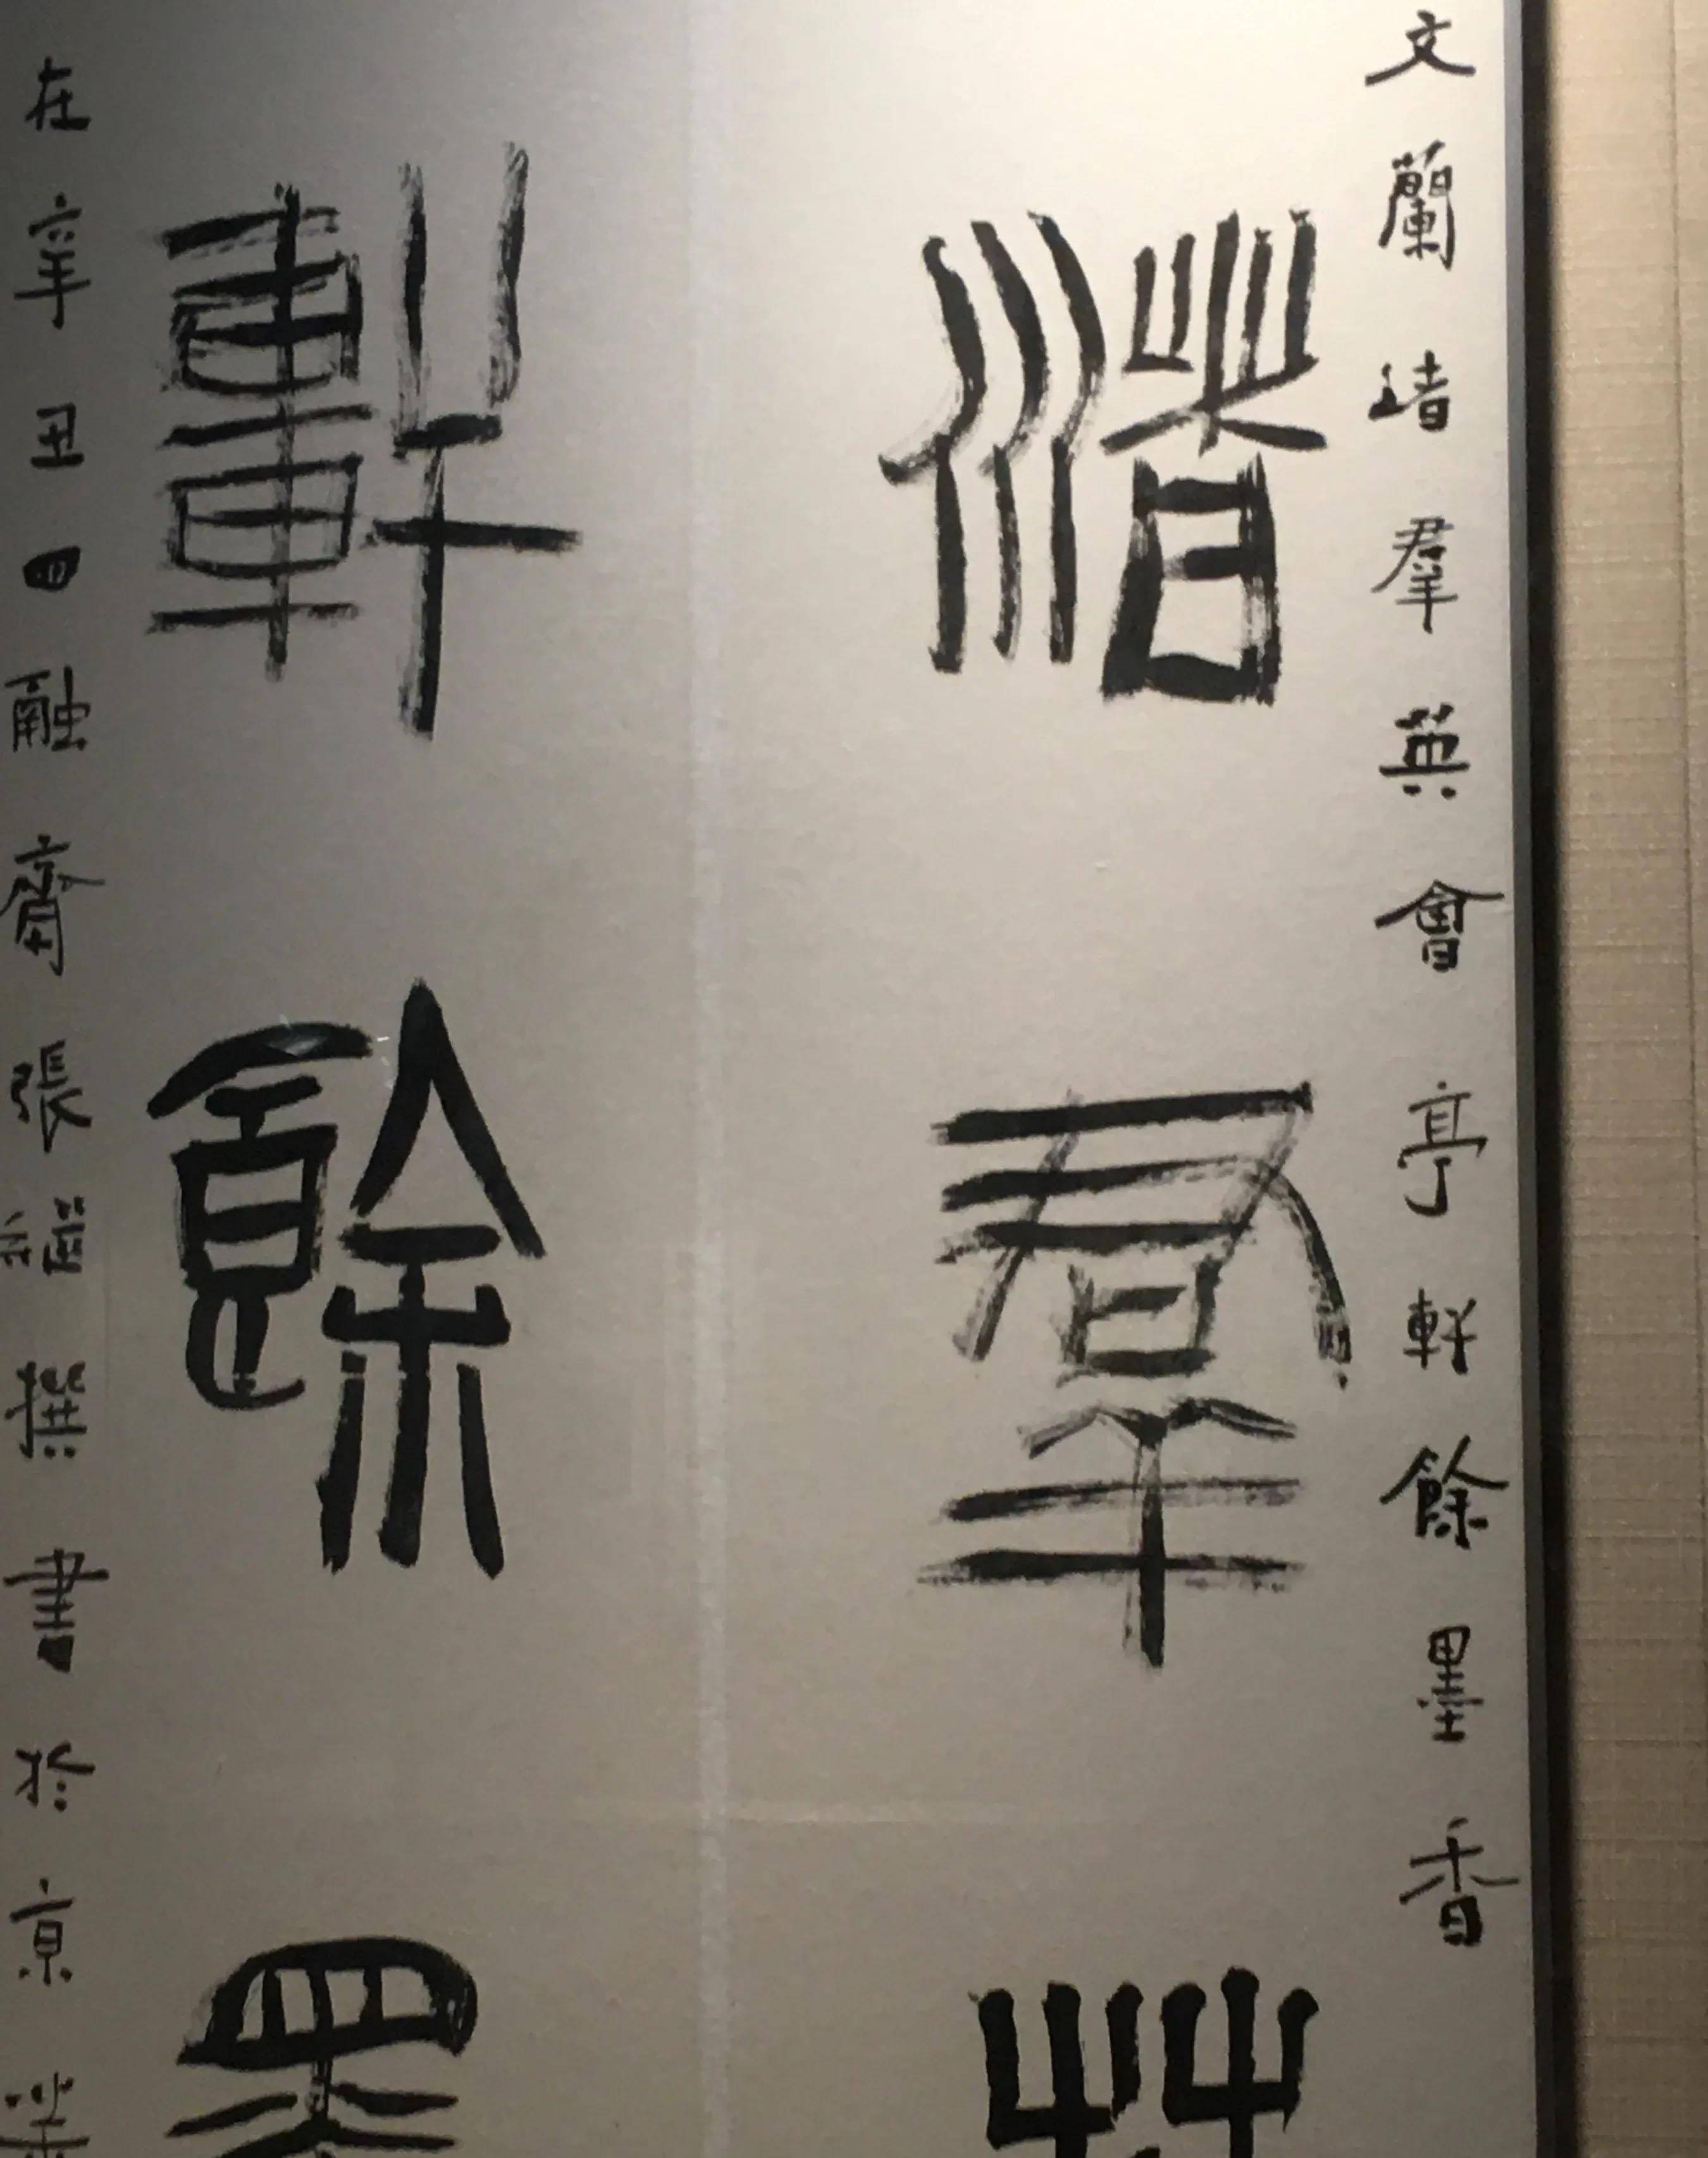 文蘭渚羣英會亭軒餘墨香
渚羣
軒餘墨
在辛丑日融齋張撰書於京